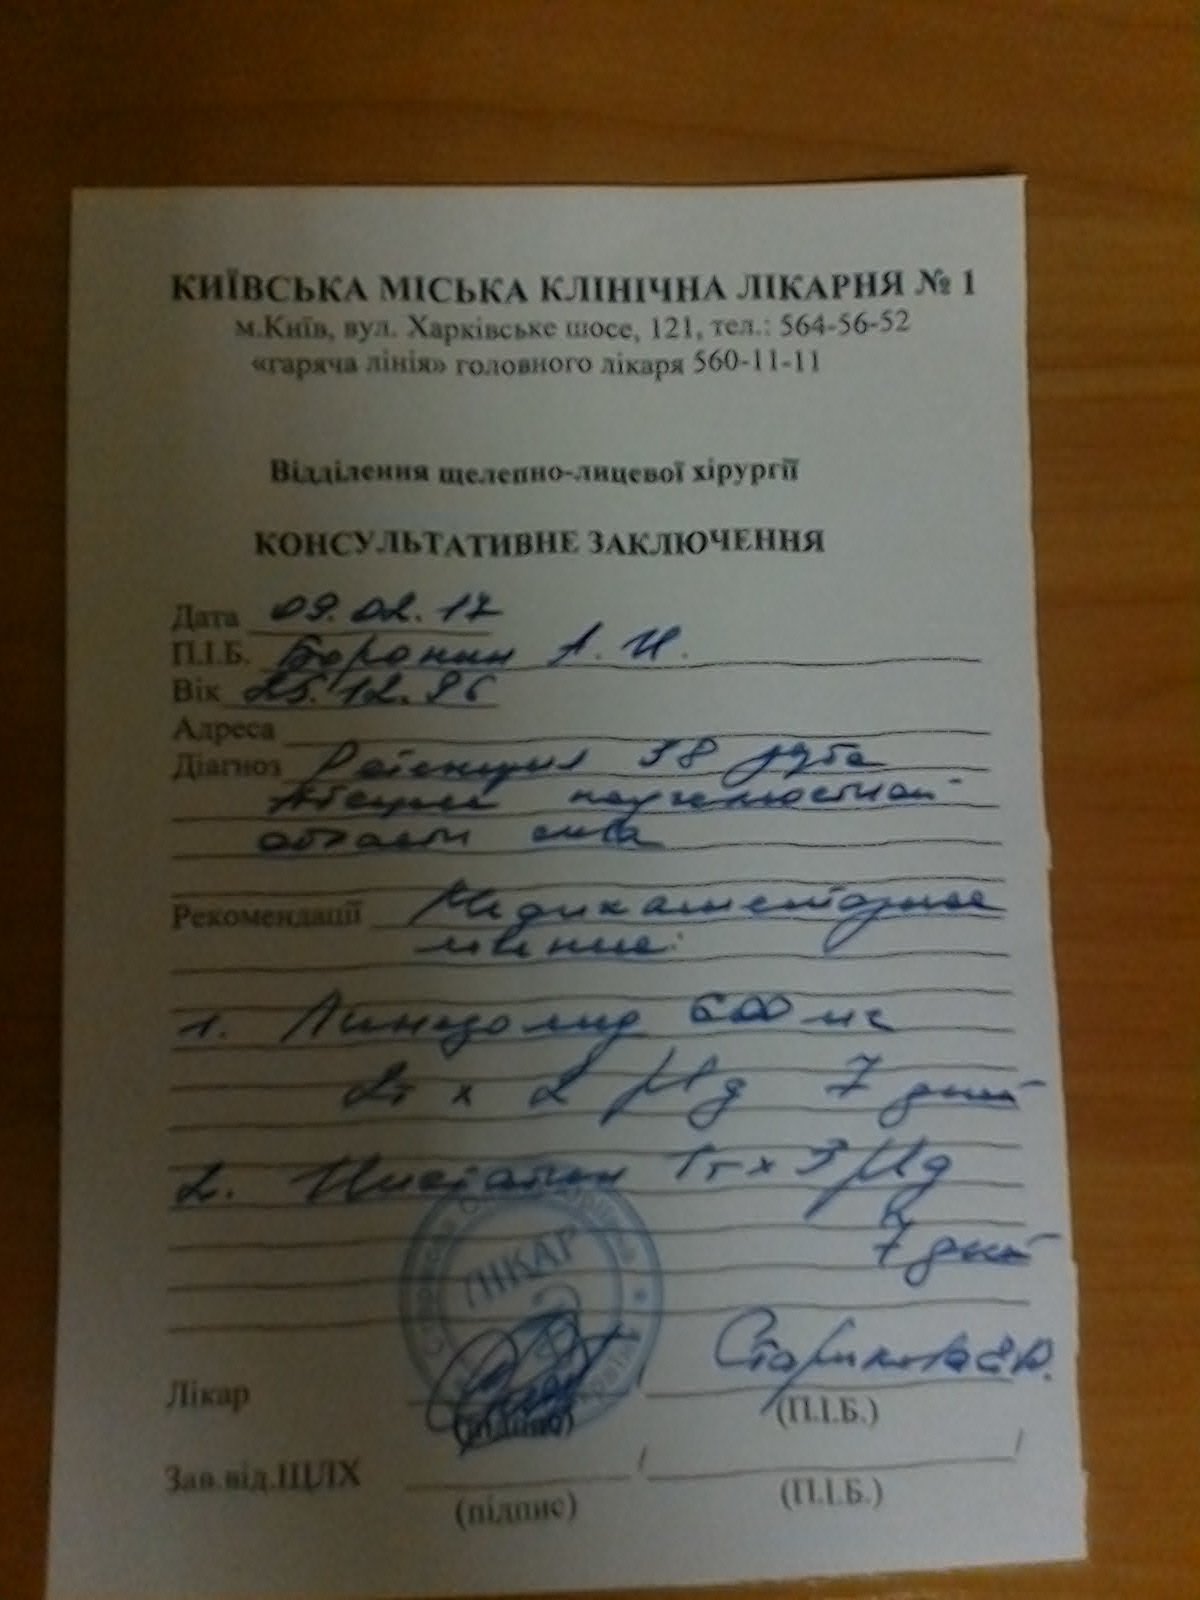 КИЇВСЬКА МІСЬКА КЛІНІЧНА ЛІКАРНЯ № 1
м.Київ, вул. Харківське шосе, 121, тел.: 564-56-52
«гаряча лінія» головного лікаря 560-11-11
Відділення щелепно-лицевої хірургії
КОНСУЛЬТАТИВНЕ ЗАКЛЮЧЕННЯ
Дата 09.02.17
П.І.Б. А. И.
Вік 25.12.96
Адреса
Діагноз Ретенция 38 зуба
Абсцесс
области
Рекомендації Медикаментозное
лечение:
1. Линезолид 600 мг
2т x 2 р/д 7 дней
2. Нистатин 1т x 3 р/д
7 дней
ЛІКАР
Лікар Старикова
(підпис) (П.І.Б.)
Зав.від.ЩЛХ / /
(підпис) (П.І.Б.)